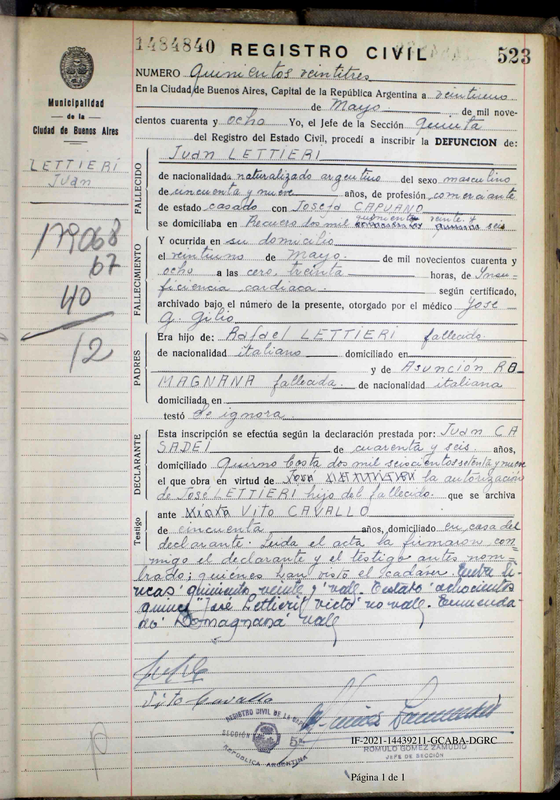 1484840 REGISTRO CIVIL 523
NUMERO Quinientos veintitres
En la Ciudad de Buenos Aires, Capital de la República Argentina a veintiuno
de Mayo de mil nove-
cientos cuarenta y ocho Yo, el Jefe de la Sección quinta
del Registro del Estado Civil, procedí a inscribir la DEFUNCION de:
Municipalidad
de la
Ciudad de Buenos Aires
LETTIERI
Juan
179068
67
40
12
FALLECIDO
Juan LETTIERI
de nacionalidad naturalizado argentino del sexo masculino
de cincuenta y nueve años, de profesión comerciante
de estado casado con Josefa CAPUANO
se domiciliaba en Recuero dos mil quinientos veinte y seis
FALLECIMIENTO
Y ocurrida en su domicilio
el veintiuno de Mayo de mil novecientos cuarenta y
ocho a las cero, treinta horas, de Insu-
ficiencia cardiaca. según certificado,
archivado bajo el número de la presente, otorgado por el médico Jose
G. Gilio
PADRES
Era hijo de: Rafael LETTIERI fallecido
de nacionalidad italiano domiciliado en
y de Asunción RO
MAGNANA fallecida. de nacionalidad italiana
domiciliada en
testó Se ignora
DECLARANTE
Esta inscripción se efectúa según la declaración prestada por: Juan CA
SADEI de cuarenta y seis años,
domiciliado Quirno Costa dos mil seiscientos setenta y nueve
el que obra en virtud de la autorización
de José LETTIERI hijo del fallecido. que se archiva
Testigo
ante Vito CAVALLO
de cincuenta años, domiciliado en casa del
declarante. Leida el acta la firmaron con-
migo el declarante y el testigo antes nom-
brado; quienes han visto el cadaver. Entre li-
neas: quinientos veinte y: vale. Testado: ochocientos
quince José Lettieri no vale. Enmenda-
do: Romagnana: vale
Vito Cavallo
REGISTRO CIVIL DE LA CAP
SECCIÓN 5a
REPUBLICA ARGENTINA
IF-2021-14439211-GCABA-DGRC
ROMULO GOMEZ ZAMUDIO
JEFE DE SECCIÓN
Página 1 de 1